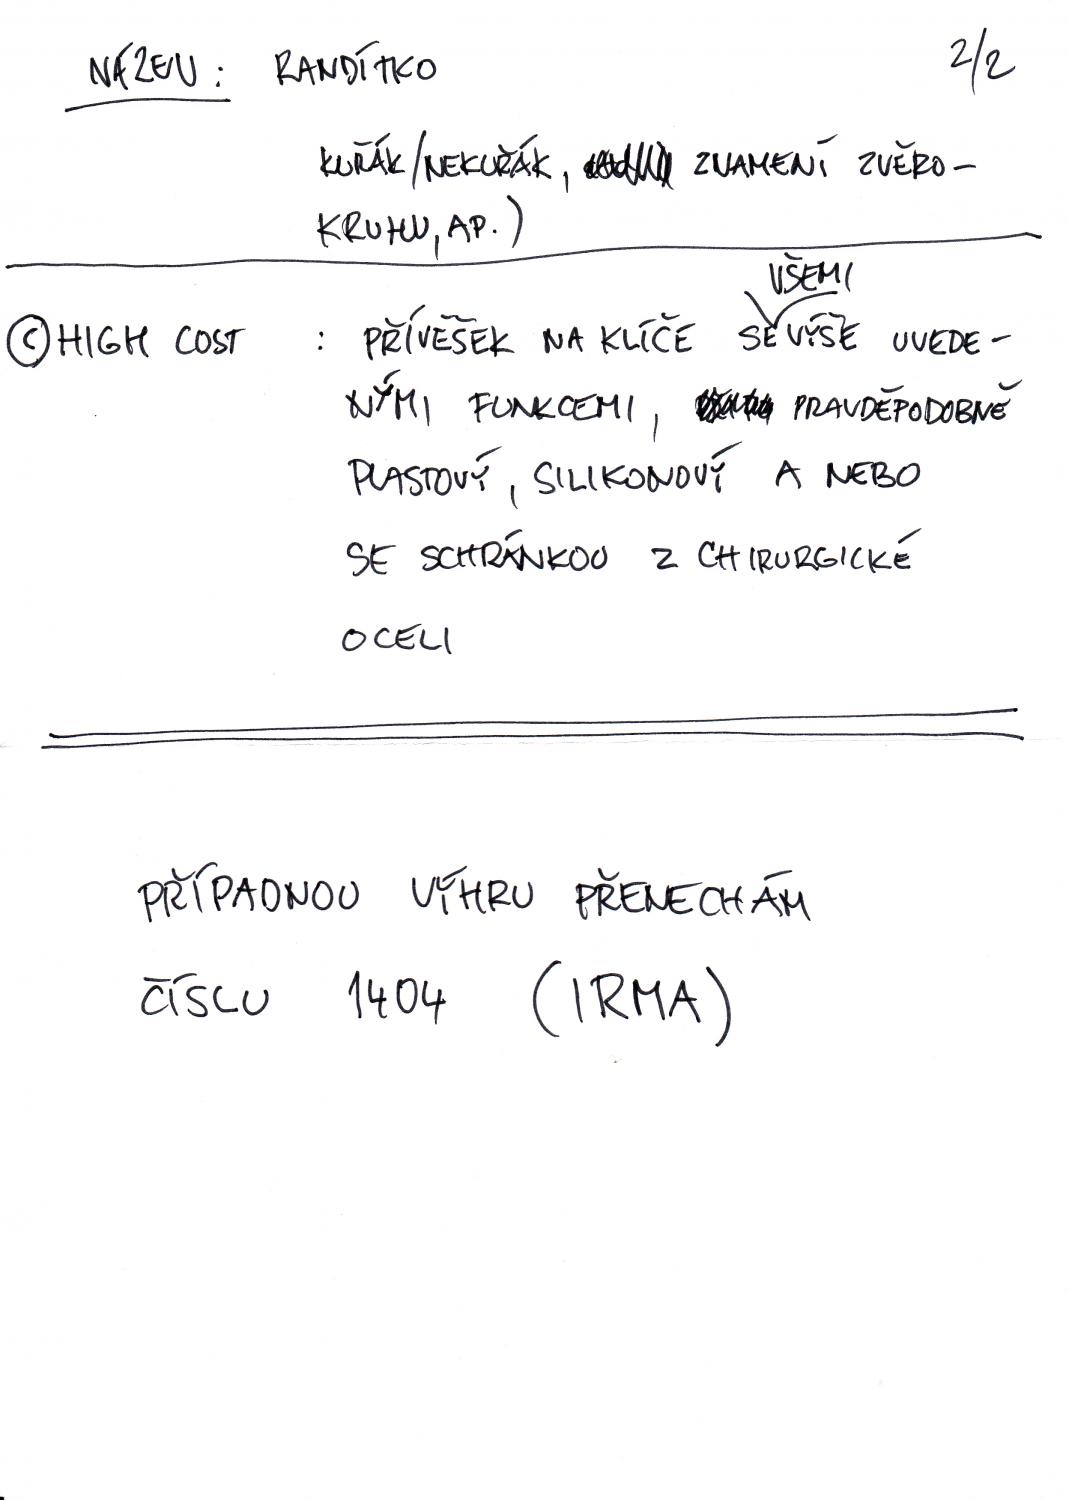 NÁZEV: RANDÍTKO 2/2
KUŘÁK/NEKUŘÁK, ZNAMENÍ ZVĚRO-
KRUHU, AP.)
VŠEMI
Ⓒ HIGH COST : PŘÍVĚŠEK NA KLÍČE SE VÝŠE UVEDE-
NÝMI FUNKCEMI, PRAVDĚPODOBNĚ
PLASTOVÝ, SILIKONOVÝ A NEBO
SE SCHRÁNKOU Z CHIRURGICKÉ
OCELI
PŘÍPADNOU VÝHRU PŘENECHÁM
ČÍSLU 1404 (IRMA)